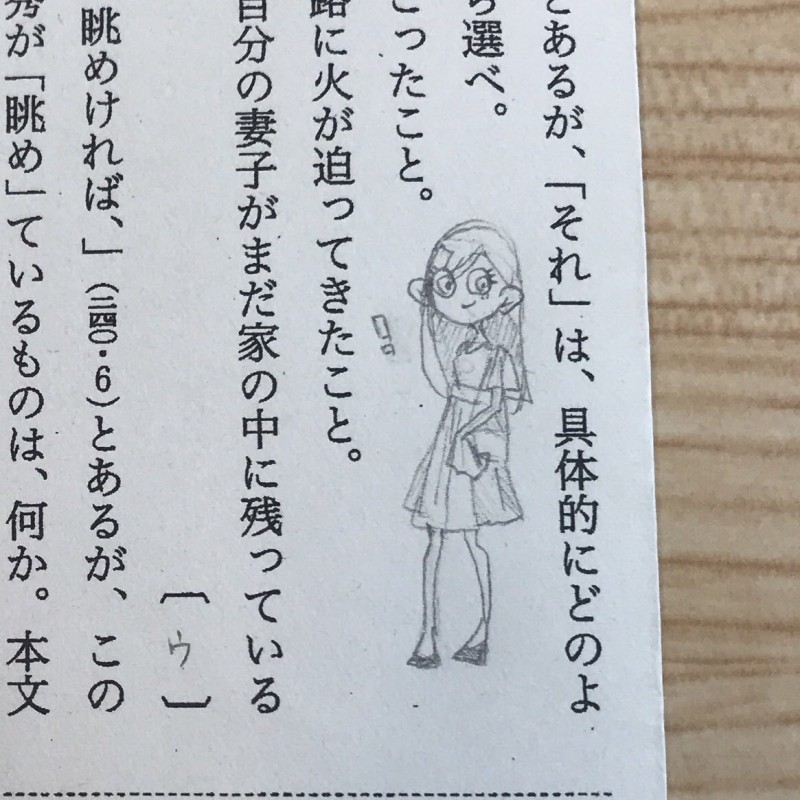 とあるが、「それ」は、具体的にどのよ
ら選べ。
こったこと。
路に火が迫ってきたこと。
自分の妻子がまだ家の中に残っている
〔ウ〕
眺めければ、」(二四〇・6)とあるが、この
秀が「眺め」ているものは、何か。本文
!。